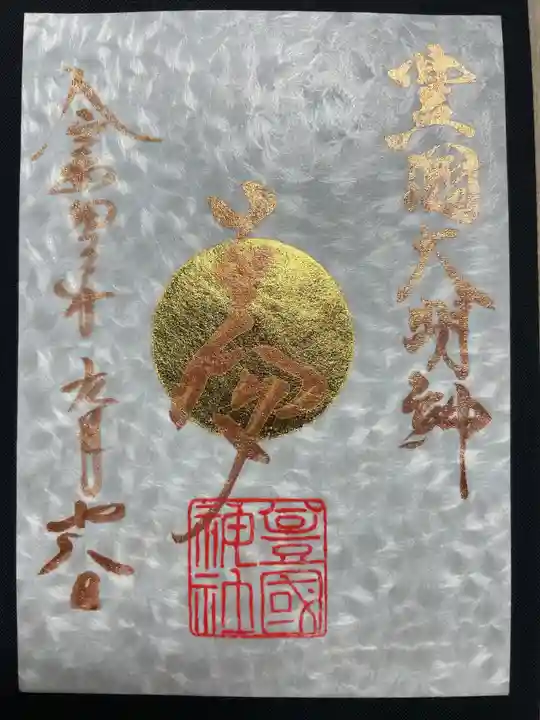 豊國大明神
令和四年九月廿八日
豊國
神社